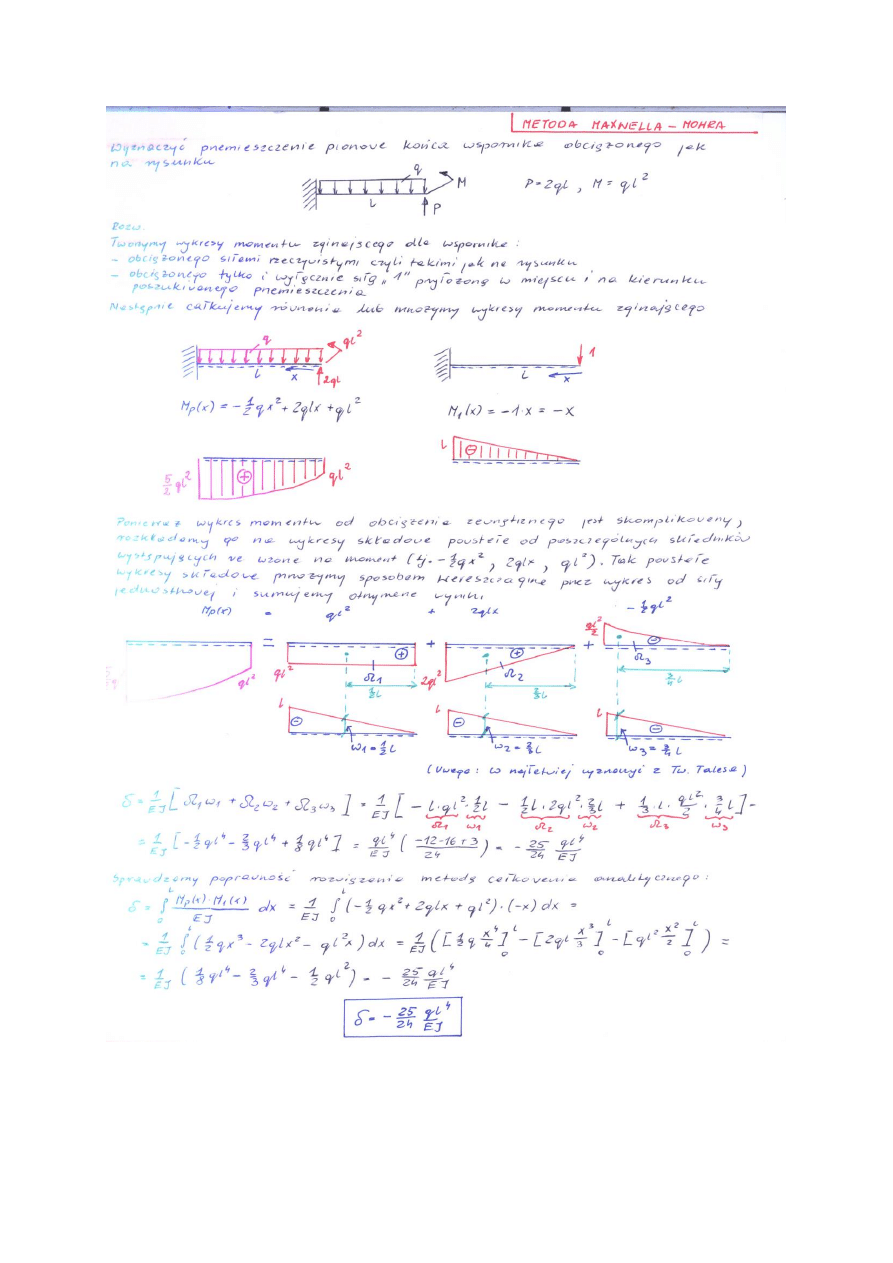 METODA MAXWELLA - MOHRA
Wyznaczyć przemieszczenie pionowe końca wspornika obciążonego jak
na rysunku
q
M
P = 2ql , M = ql²
l
P
Rozw.
Tworzymy wykresy momentu zginającego dla wspornika :
- obciążonego siłami rzeczywistymi czyli takimi jak na rysunku
- obciążonego tylko i wyłącznie siłą „1" przyłożoną w miejscu i na kierunku
poszukiwanego przemieszczenia
Następnie całkujemy równania lub mnożymy wykresy momentu zginającego
q ql² 1
l x 2ql l x
Mp(x) = - 1/2 qx² + 2qlx + ql² M₁(x) = -1·x = -x
5/2 ql² ⊕ ql² l ⊖
Ponieważ wykres momentu od obciążenia zewnętrznego jest skomplikowany,
rozkładamy go na wykresy składowe powstałe od poszczególnych składników
występujących we wzorze na moment (tj. - 1/2 qx² , 2qlx , ql²). Tak powstałe
wykresy składowe mnożymy sposobem Wereszczagina przez wykres od siły
jednostkowej i sumujemy otrzymane wyniki
Mp(x) = ql² + 2qlx - 1/2 ql²
ql²/2 ⊖
= ⊕ + ⊕ + Ω₃
ql² ql² Ω₁ 2ql² Ω₂
1/2 l 2/3 l 3/4 l
l ⊖ l ⊖ l ⊖
ω₁ = 1/2 l ω₂ = 2/3 l ω₃ = 3/4 l
(Uwaga : ω najłatwiej wyznaczyć z Tw. Talesa)
δ = 1/EJ [ Ω₁ω₁ + Ω₂ω₂ + Ω₃ω₃ ] = 1/EJ [ - l·ql²·1/2 l - 1/2 l·2ql²·2/3 l + 1/3·l·ql²/2·3/4 l ] =
Ω₁ ω₁ Ω₂ ω₂ Ω₃ ω₃
= 1/EJ [ -1/2 ql⁴ - 2/3 ql⁴ + 1/8 ql⁴ ] = ql⁴/EJ ( (-12-16+3)/24 ) = - 25/24 ql⁴/EJ
Sprawdzamy poprawność rozwiązania metodą całkowania analitycznego :
δ = ∫₀ˡ Mp(x)·M₁(x)/EJ dx = 1/EJ ∫₀ˡ (-1/2 qx² + 2qlx + ql²)·(-x) dx =
= 1/EJ ∫₀ˡ ( 1/2 qx³ - 2qlx² - ql²x ) dx = 1/EJ ( [ 1/2 q x⁴/4 ]₀ˡ - [ 2ql x³/3 ]₀ˡ - [ ql² x²/2 ]₀ˡ ) =
= 1/EJ ( 1/8 ql⁴ - 2/3 ql⁴ - 1/2 ql² ) = - 25/24 ql⁴/EJ
δ = - 25/24 ql⁴/EJ